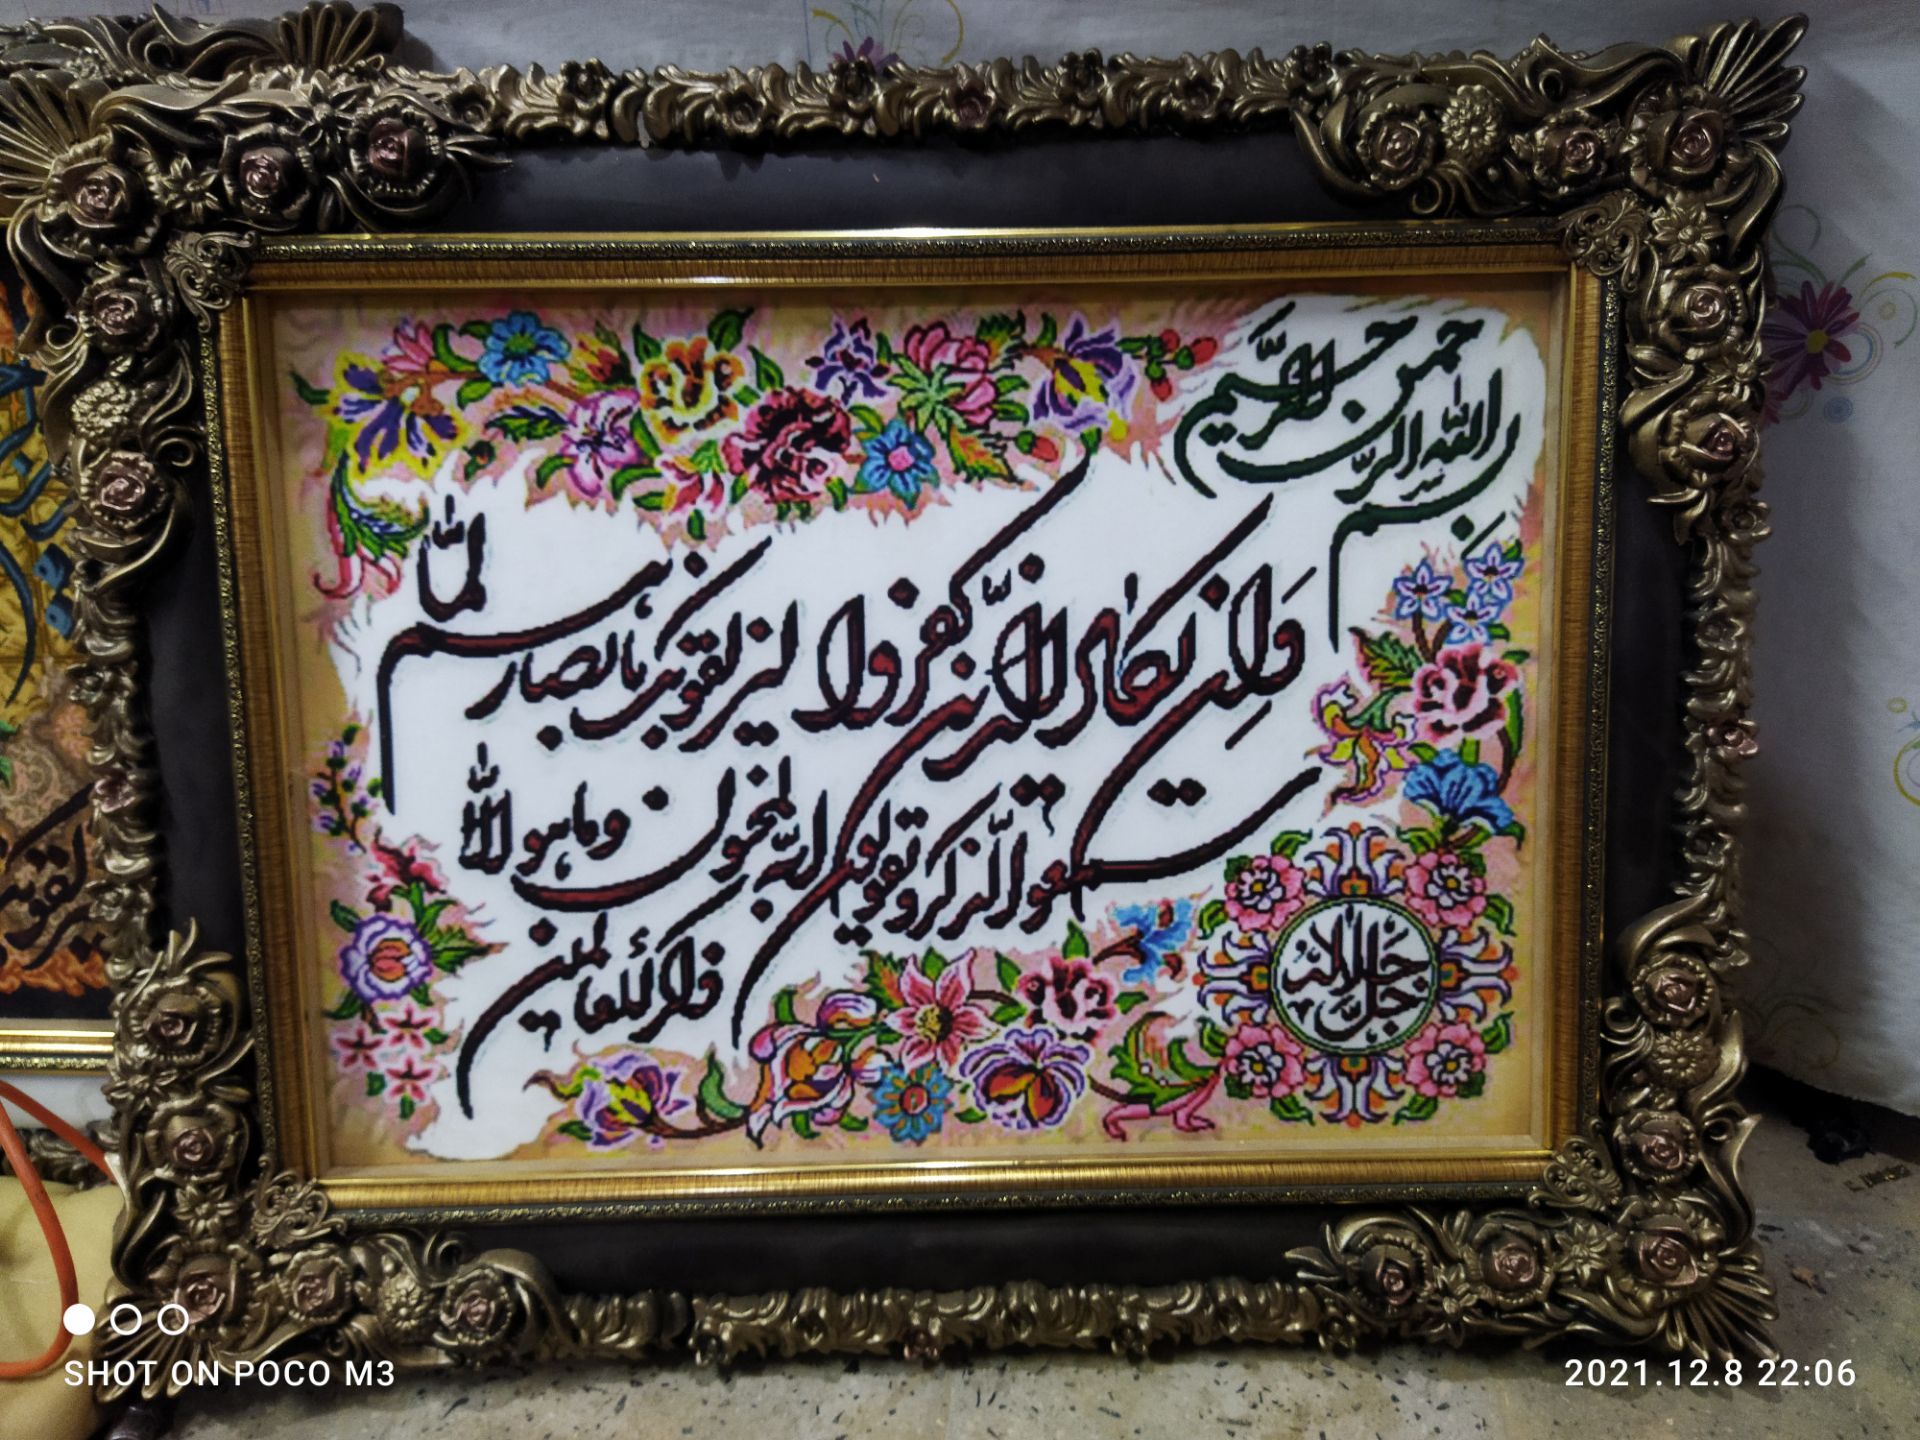 بسم الله الرحمن الرحیم
وان یکاد الذین کفروا لیزلقونک بابصارهم لما
سمعوا الذکر و یقولون انه لمجنون وما هو الا
ذکر للعالمین
جل جلاله
SHOT ON POCO M3
2021.12.8 22:06